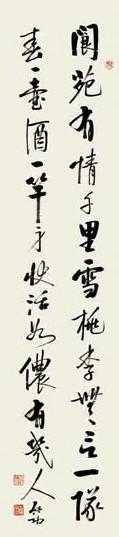 閬苑有情千里雪桃李無言一隊
春一壺酒一竿身快活如儂有幾人 啟功